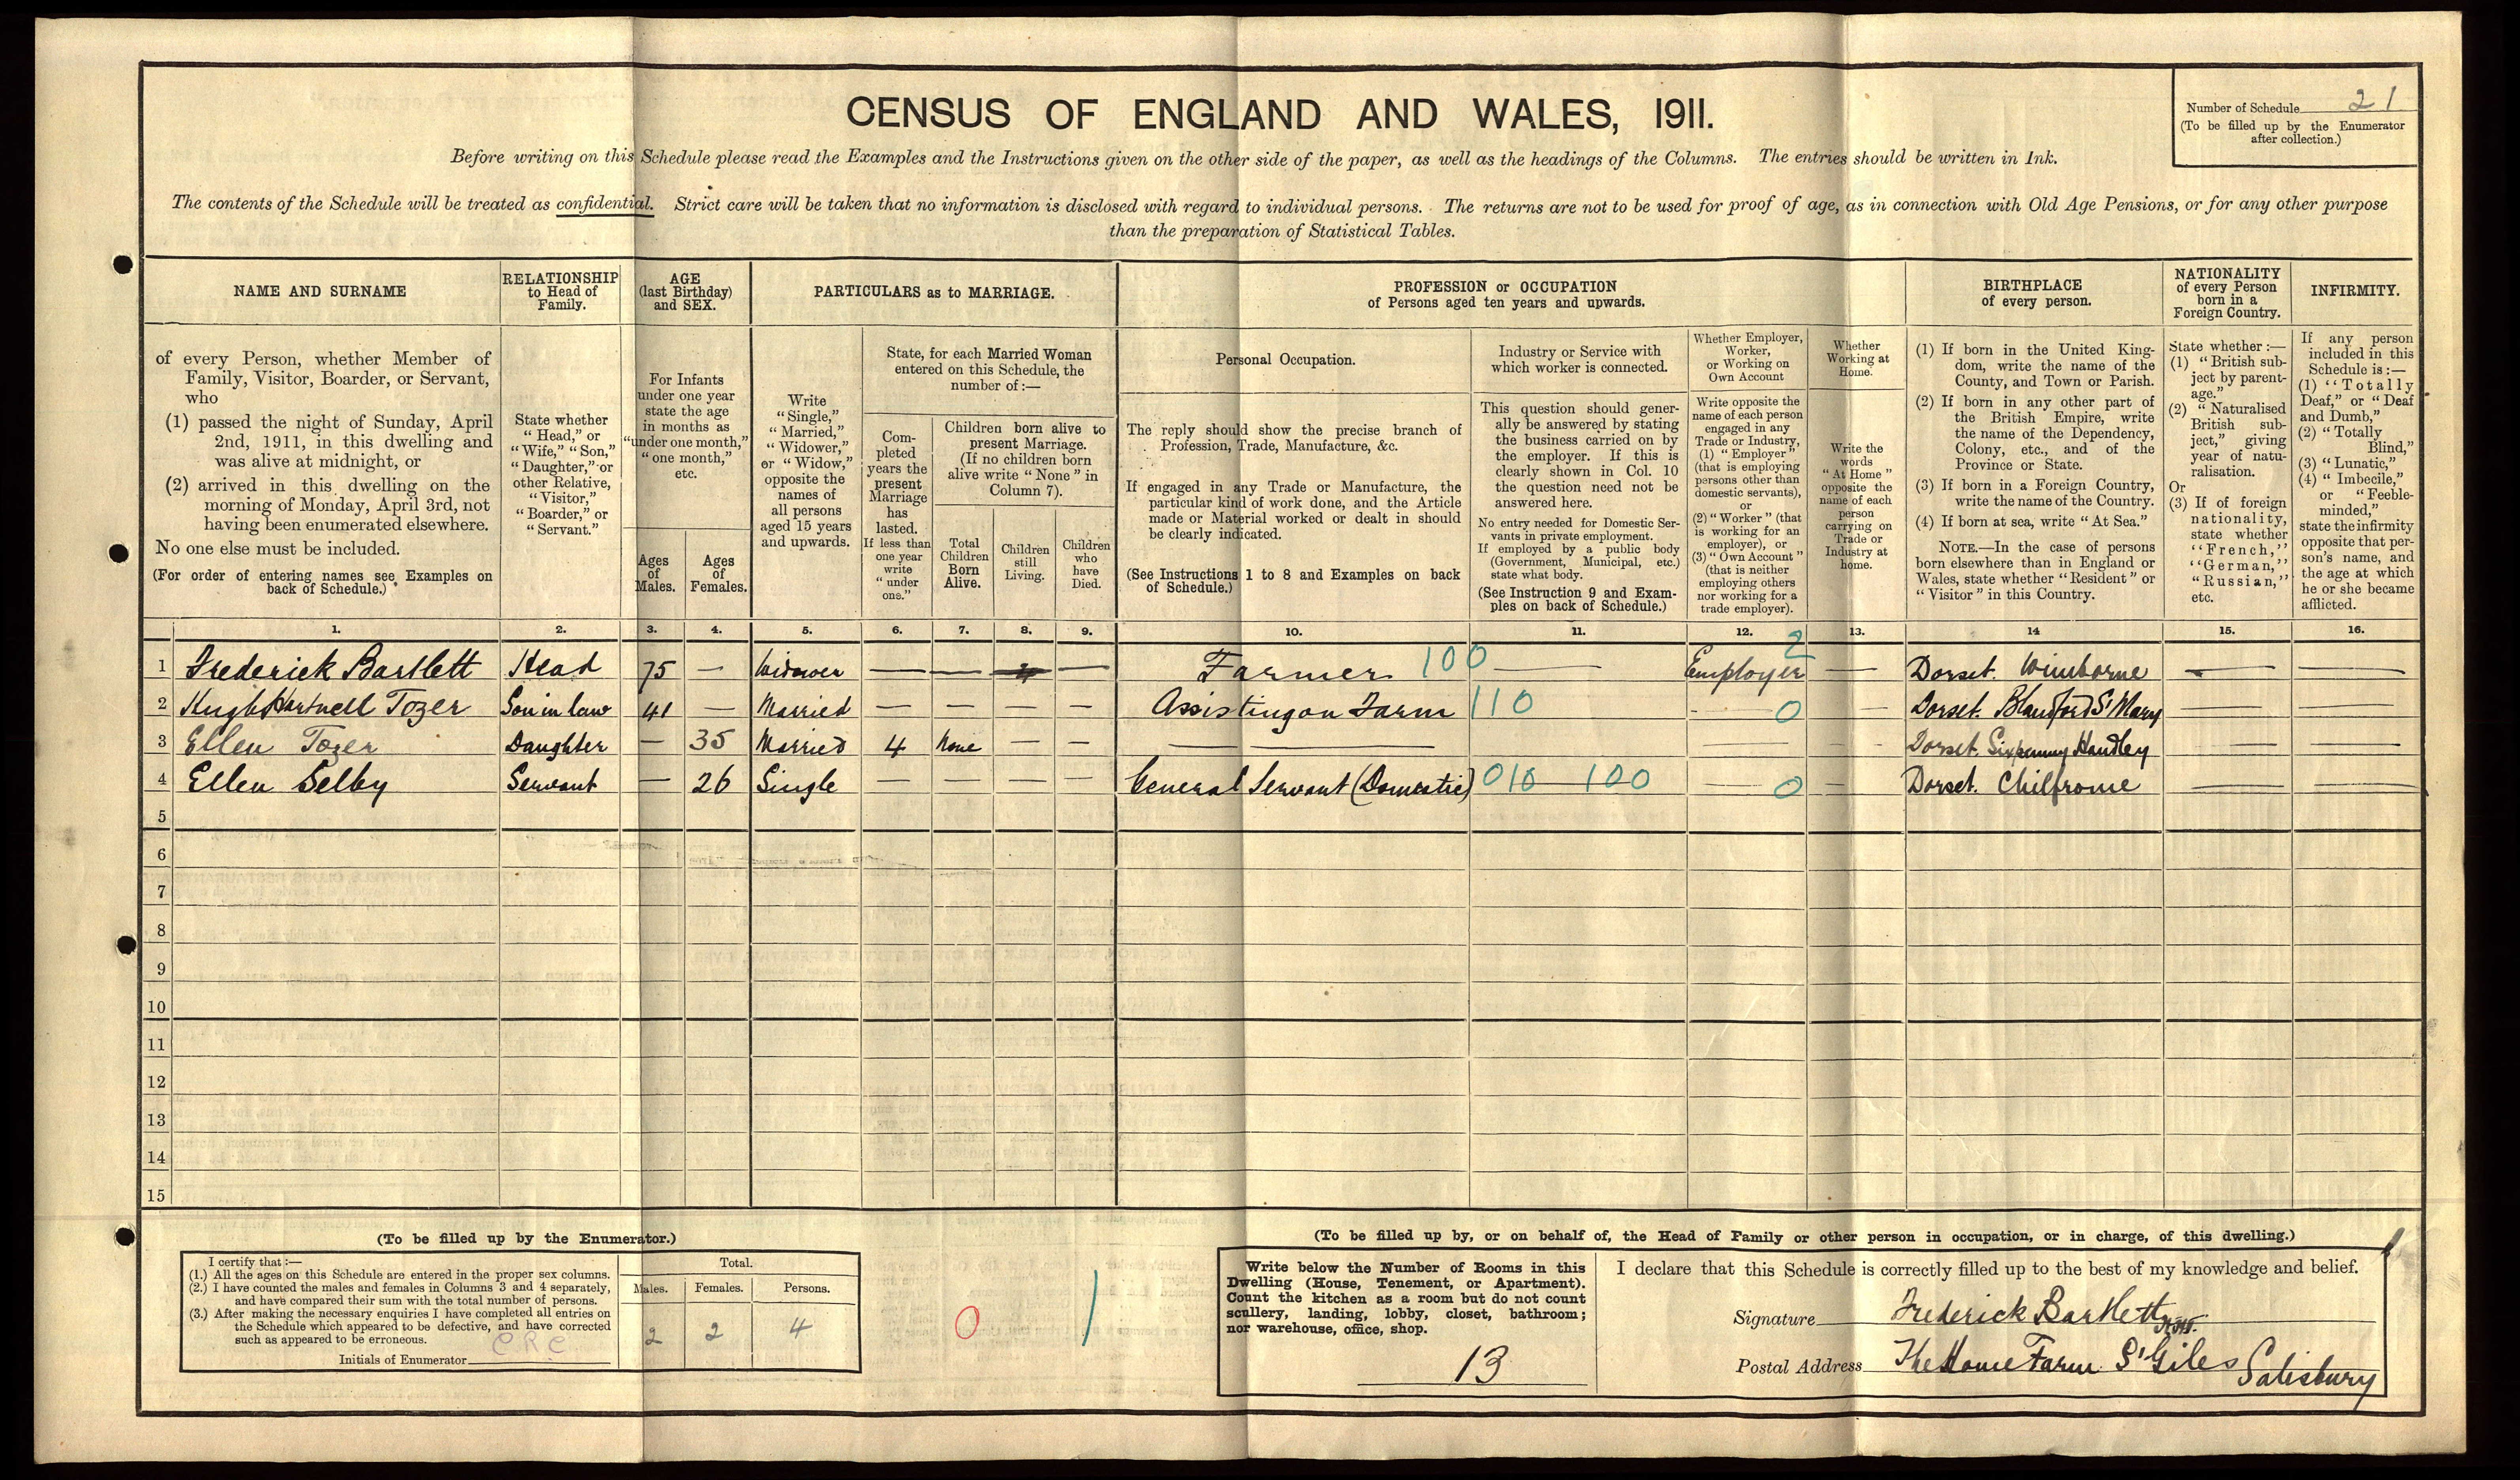 CENSUS OF ENGLAND AND WALES, 1911.
Number of Schedule 21
(To be filled up by the Enumerator
after collection.)
Before writing on this Schedule please read the Examples and the Instructions given on the other side of the paper, as well as the headings of the Columns. The entries should be written in Ink.
The contents of the Schedule will be treated as confidential. Strict care will be taken that no information is disclosed with regard to individual persons. The returns are not to be used for proof of age, as in connection with Old Age Pensions, or for any other purpose
than the preparation of Statistical Tables.
NAME AND SURNAME
of every Person, whether Member of
Family, Visitor, Boarder, or Servant,
who
(1) passed the night of Sunday, April
2nd, 1911, in this dwelling and
was alive at midnight, or
(2) arrived in this dwelling on the
morning of Monday, April 3rd, not
having been enumerated elsewhere.
No one else must be included.
(For order of entering names see Examples on
back of Schedule.)
RELATIONSHIP
to Head of
Family.
State whether
"Head," or
"Wife," "Son,"
"Daughter," or
other Relative,
"Visitor,"
"Boarder," or
"Servant."
AGE
(last Birthday)
and SEX.
For Infants
under one year
state the age
in months as
"under one month,"
"one month,"
etc.
Ages
of
Males.
Ages
of
Females.
PARTICULARS as to MARRIAGE.
Write
"Single,"
"Married,"
"Widower,"
or "Widow,"
opposite the
names of
all persons
aged 15 years
and upwards.
State, for each Married Woman
entered on this Schedule, the
number of :—
Com-
pleted
years the
present
Marriage
has
lasted.
If less than
one year
write
"under
one."
Children born alive to
present Marriage.
(If no children born
alive write "None" in
Column 7).
Total
Children
Born
Alive.
Children
still
Living.
Children
who
have
Died.
PROFESSION or OCCUPATION
of Persons aged ten years and upwards.
Personal Occupation.
The reply should show the precise branch of
Profession, Trade, Manufacture, &c.
If engaged in any Trade or Manufacture, the
particular kind of work done, and the Article
made or Material worked or dealt in should
be clearly indicated.
(See Instructions 1 to 8 and Examples on back
of Schedule.)
Industry or Service with
which worker is connected.
This question should gener-
ally be answered by stating
the business carried on by
the employer. If this is
clearly shown in Col. 10
the question need not be
answered here.
No entry needed for Domestic Ser-
vants in private employment.
If employed by a public body
(Government, Municipal, etc.)
state what body.
(See Instruction 9 and Exam-
ples on back of Schedule.)
Whether Employer,
Worker,
or Working on
Own Account
Write opposite the
name of each person
engaged in any
Trade or Industry,
(1) "Employer"
(that is employing
persons other than
domestic servants),
or
(2) "Worker" (that
is working for an
employer), or
(3) "Own Account"
(that is neither
employing others
nor working for a
trade employer).
Whether
Working at
Home.
Write the
words
"At Home"
opposite the
name of each
person
carrying on
Trade or
Industry at
home.
BIRTHPLACE
of every person.
(1) If born in the United King-
dom, write the name of the
County, and Town or Parish.
(2) If born in any other part of
the British Empire, write
the name of the Dependency,
Colony, etc., and of the
Province or State.
(3) If born in a Foreign Country,
write the name of the Country.
(4) If born at sea, write "At Sea."
NOTE.—In the case of persons
born elsewhere than in England or
Wales, state whether "Resident" or
"Visitor" in this Country.
NATIONALITY
of every Person
born in a
Foreign Country.
State whether :—
(1) "British sub-
ject by parent-
age."
(2) "Naturalised
British sub-
ject," giving
year of natu-
ralisation.
Or
(3) If of foreign
nationality,
state whether
"French,"
"German,"
"Russian,"
etc.
INFIRMITY.
If any person
included in this
Schedule is :—
(1) "Totally
Deaf," or "Deaf
and Dumb,"
(2) "Totally
Blind,"
(3) "Lunatic,"
(4) "Imbecile,"
or "Feeble-
minded,"
state the infirmity
opposite that per-
son's name, and
the age at which
he or she became
afflicted.
1. 2. 3. 4. 5. 6. 7. 8. 9. 10. 11. 12. 13. 14 15. 16.
1 Frederick Bartlett Head 75 — Widower — — — Farmer 100 — Employer 2 — Dorset. Wimborne — —
2 Hugh Hartnell Tozer Son in law 41 — Married — — — — Assisting on Farm 110 — 0 — Dorset. Blandford St Mary — —
3 Ellen Tozer Daughter — 35 Married 4 None — — — — — Dorset. Sixpenny Handley — —
4 Ellen Selby Servant — 26 Single — — — — General Servant (Domestic) 010 100 — 0 — Dorset. Chilfrome — —
5
6
7
8
9
10
11
12
13
14
15
(To be filled up by the Enumerator.)
I certify that :—
(1.) All the ages on this Schedule are entered in the proper sex columns.
(2.) I have counted the males and females in Columns 3 and 4 separately,
and have compared their sum with the total number of persons.
(3.) After making the necessary enquiries I have completed all entries on
the Schedule which appeared to be defective, and have corrected
such as appeared to be erroneous.
Initials of Enumerator CRC
Total.
Males. Females. Persons.
2 2 4
0 1
(To be filled up by, or on behalf of, the Head of Family or other person in occupation, or in charge, of this dwelling.)
Write below the Number of Rooms in this
Dwelling (House, Tenement, or Apartment).
Count the kitchen as a room but do not count
scullery, landing, lobby, closet, bathroom;
nor warehouse, office, shop.
13
I declare that this Schedule is correctly filled up to the best of my knowledge and belief.
Signature Frederick Bartlett
Postal Address The Home Farm St Giles Salisbury